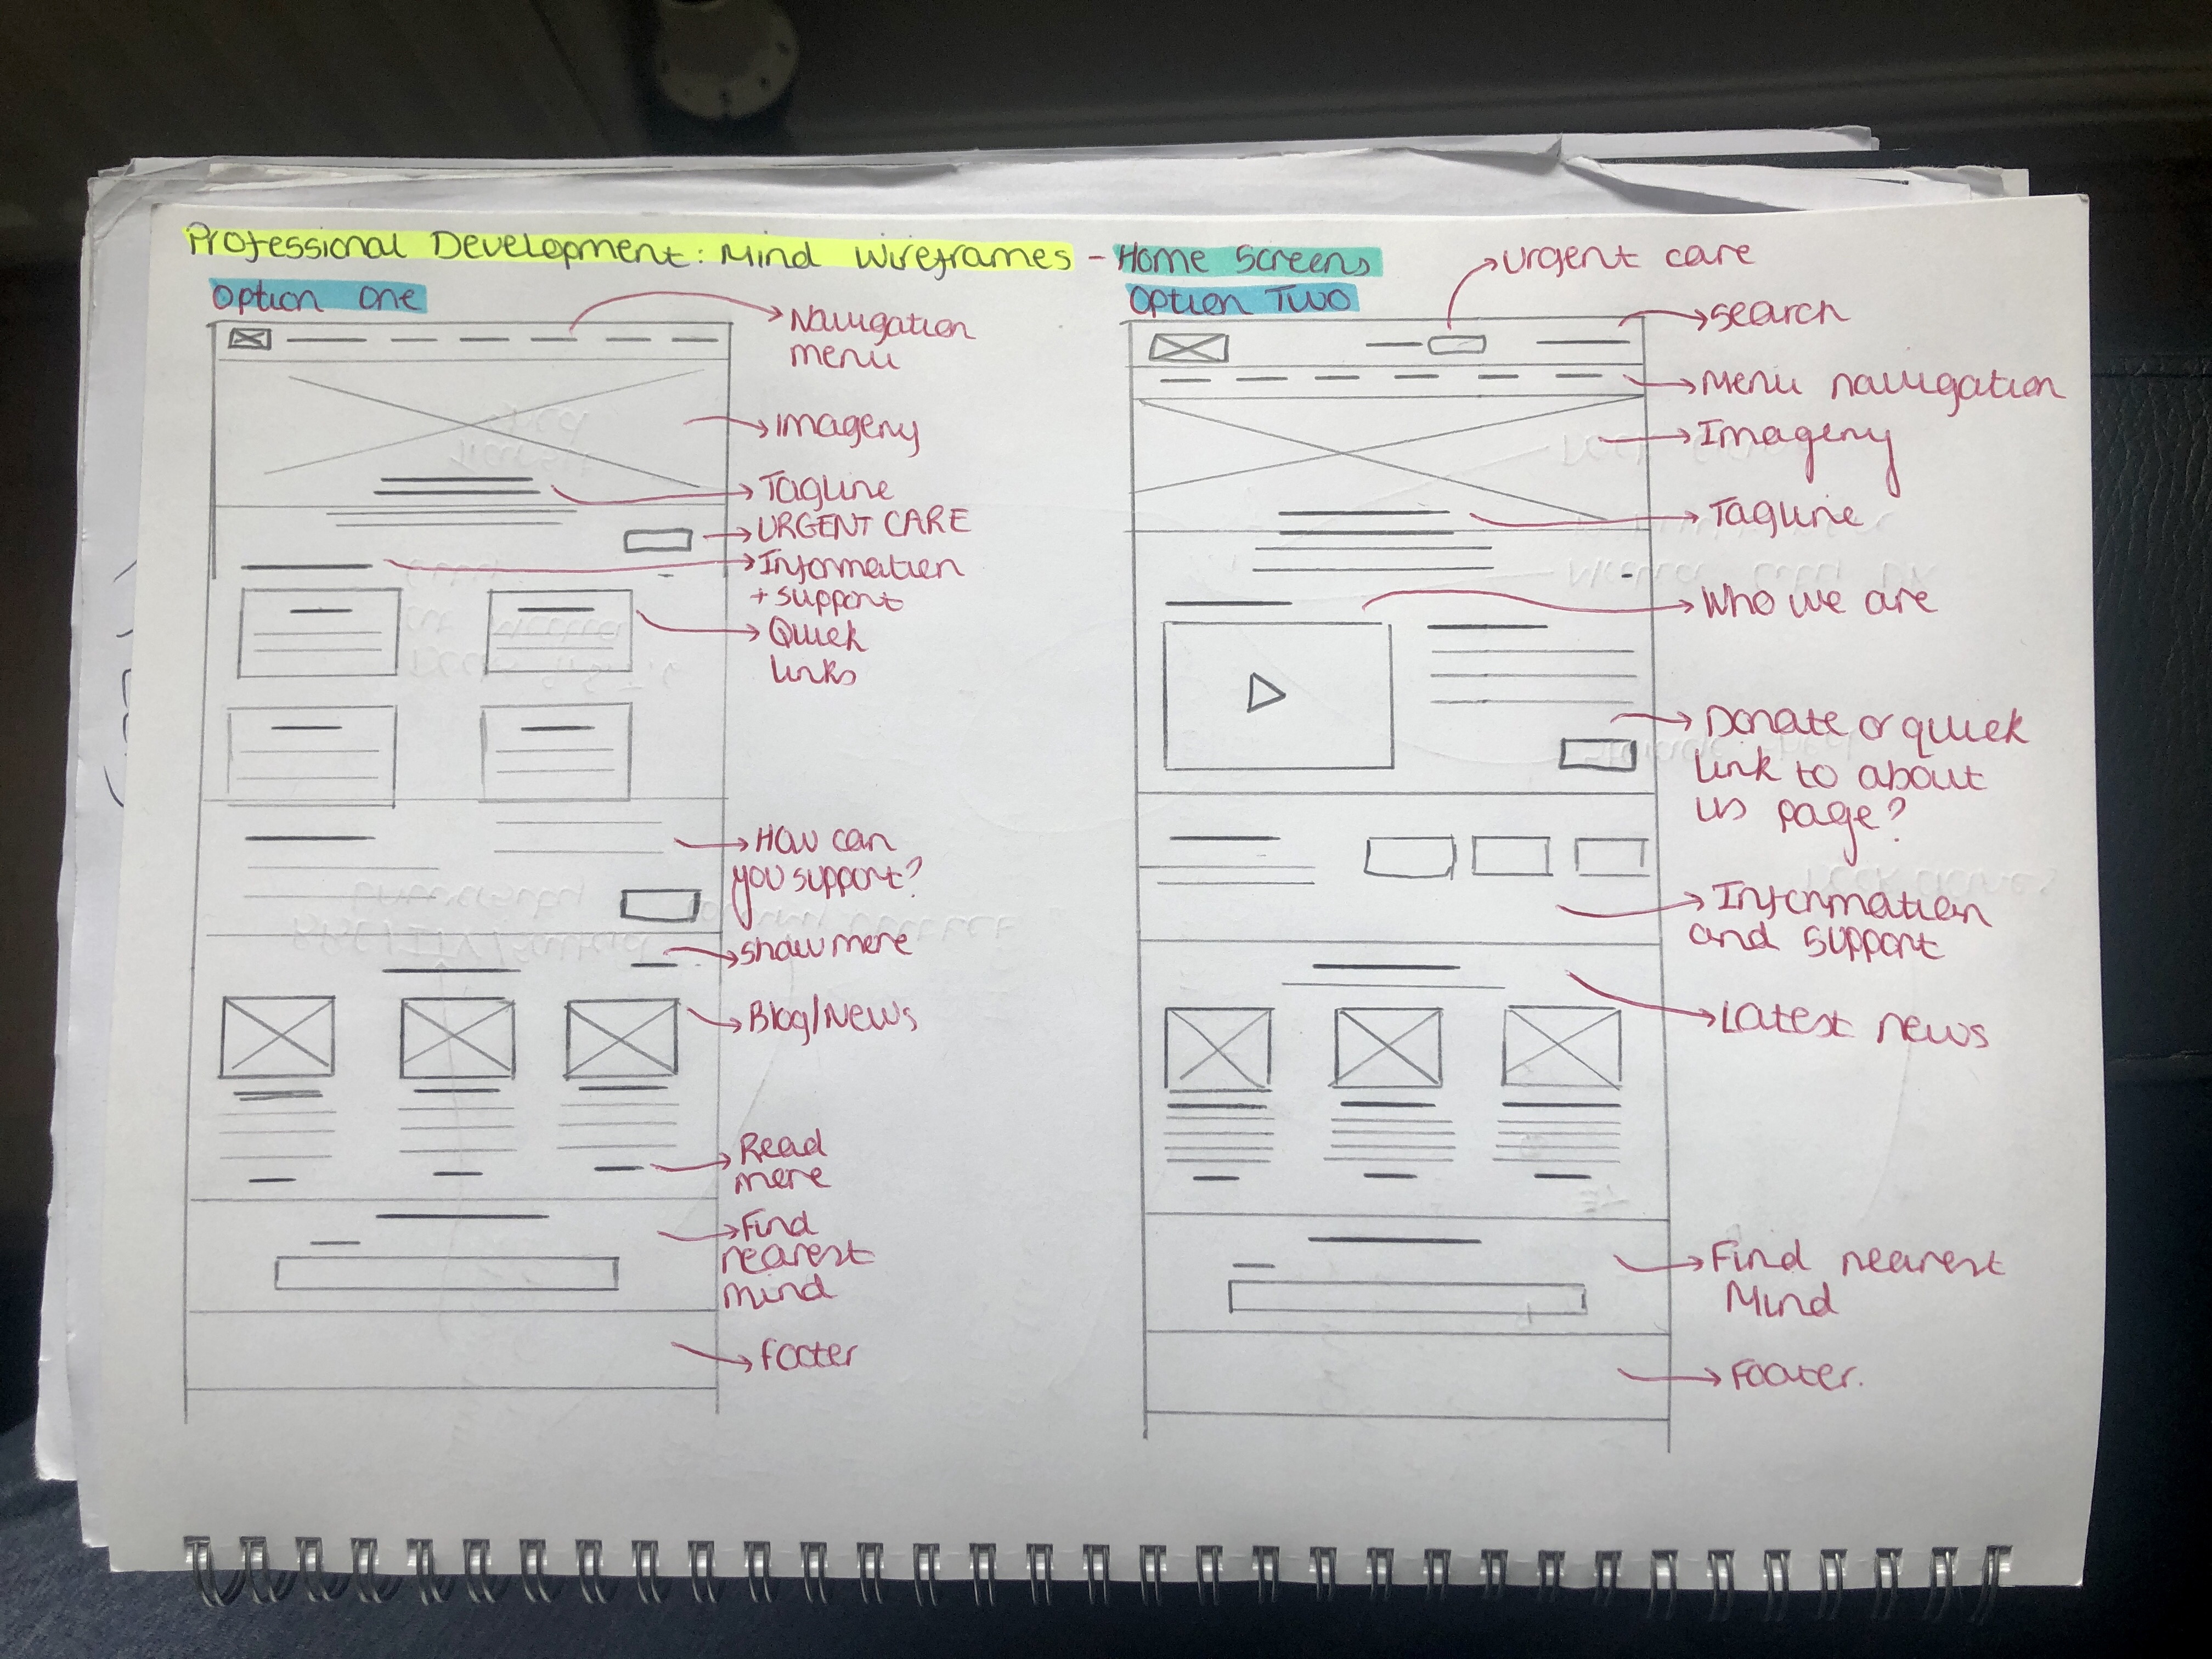 Professional Development: Mind Wireframes - Home Screens
Option One
Navigation
menu
Imagery
Tagline
URGENT CARE
Information
+ support
Quick
links
How can
you support?
show more
Blog/News
Read
more
Find
nearest
mind
footer
Option Two
urgent care
search
Menu navigation
Imagery
Tagline
Who we are
Donate or quick
link to about
us page?
Information
and support
Latest news
Find nearest
Mind
Footer.